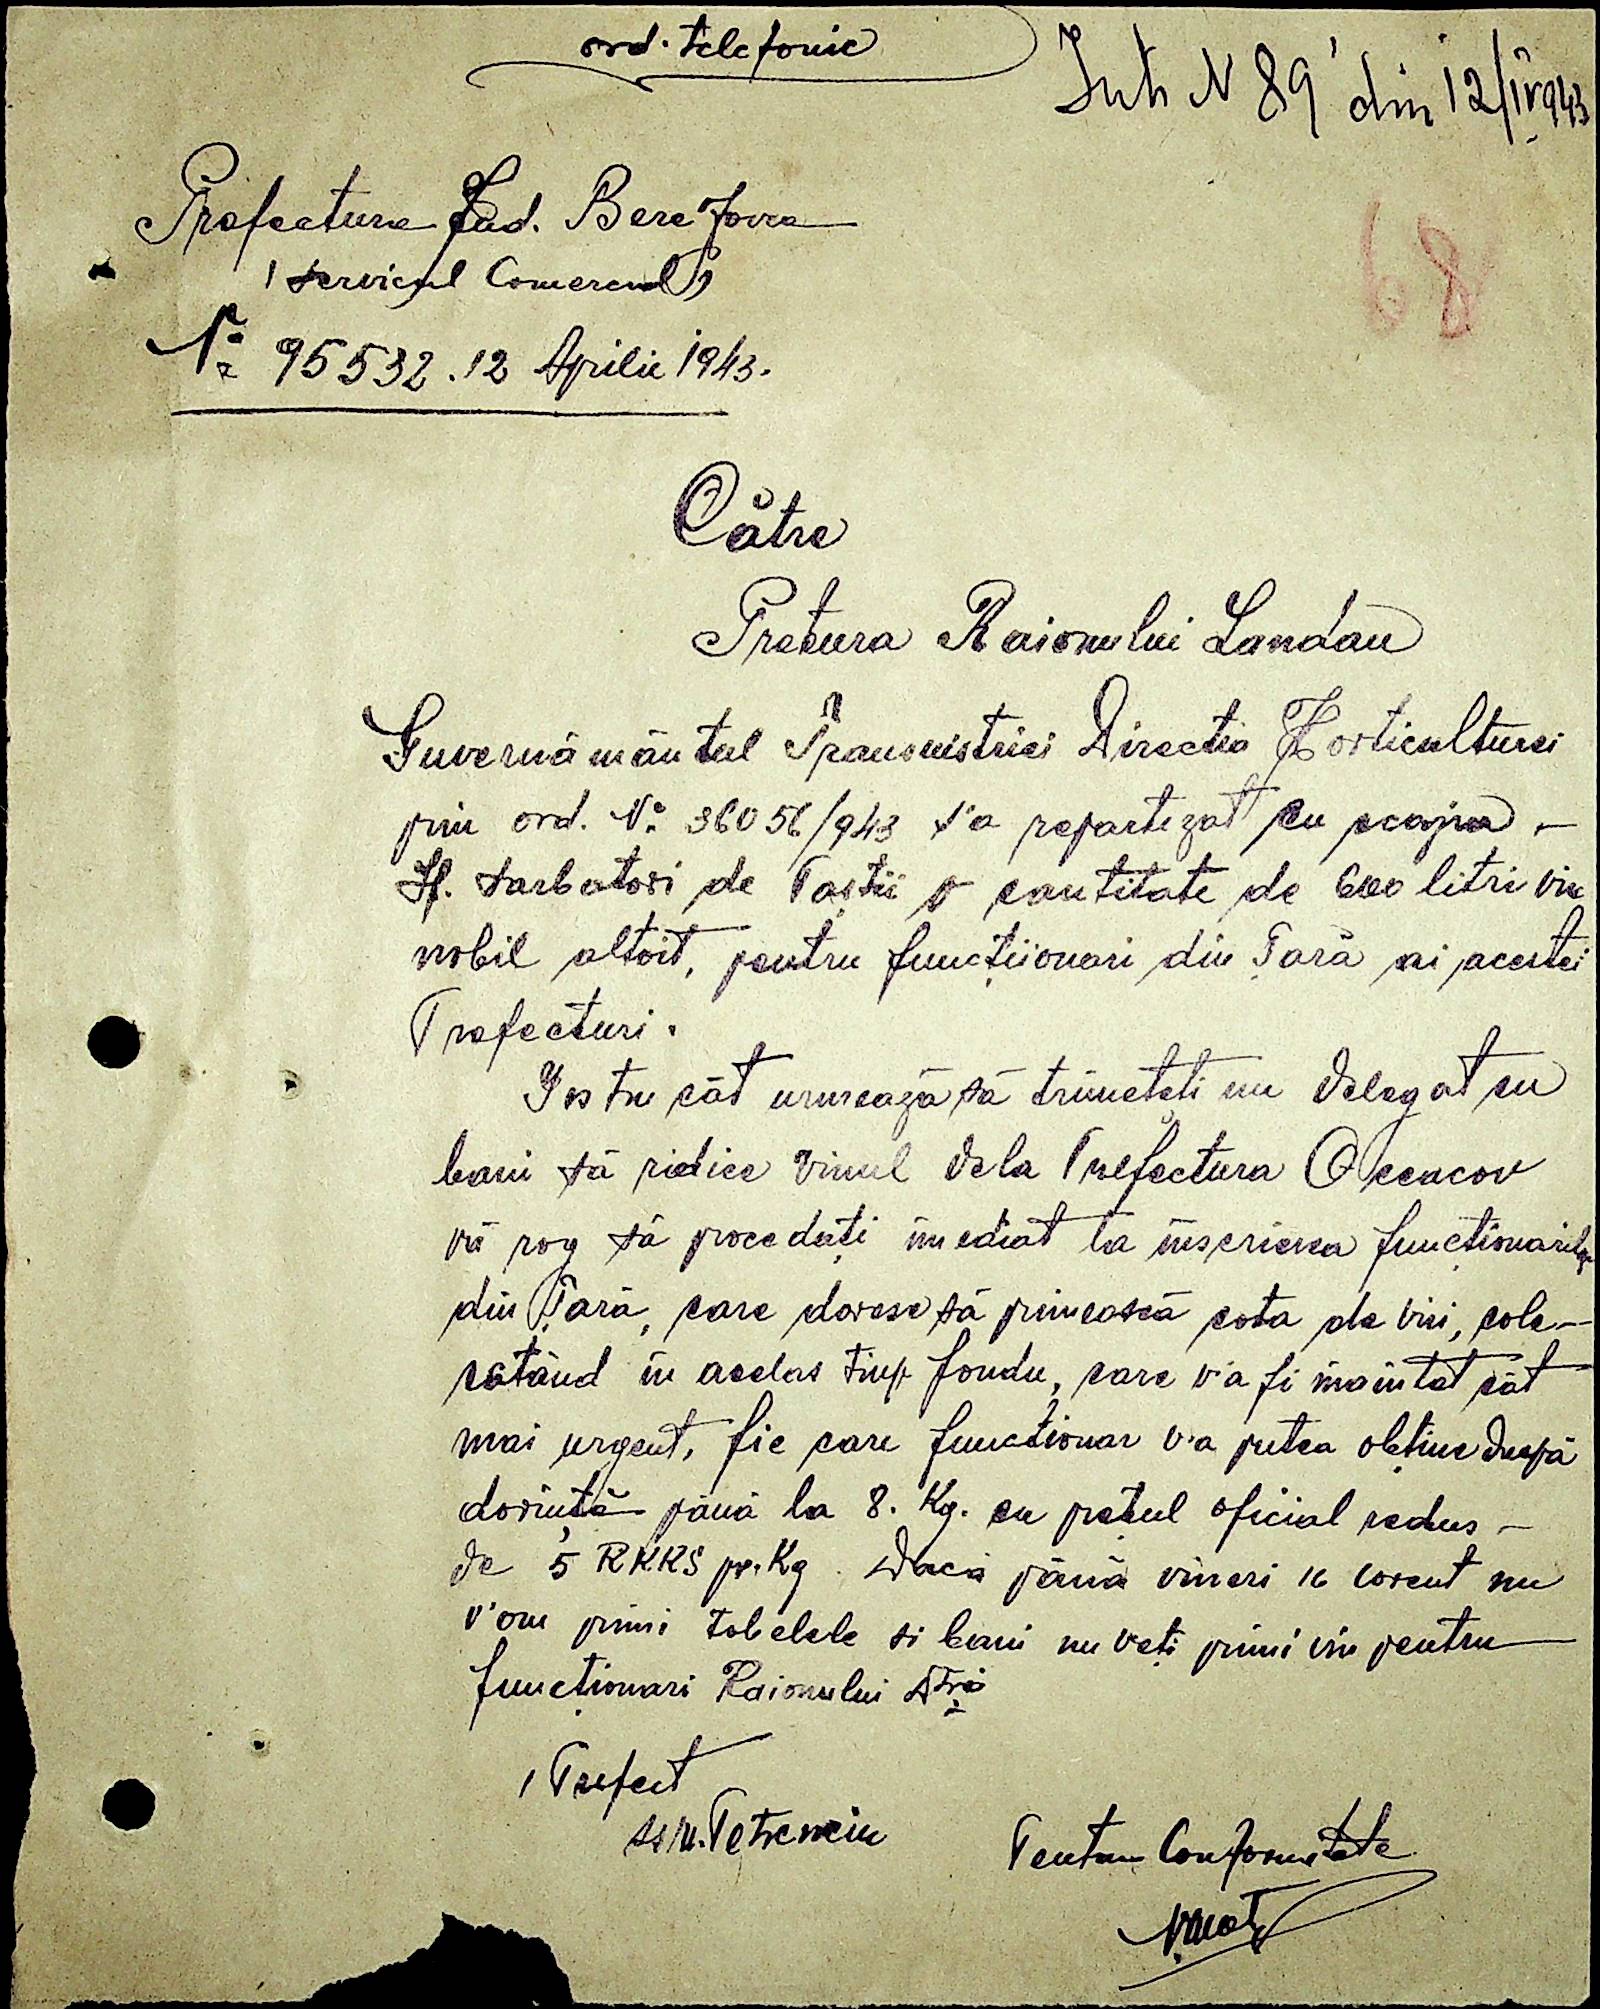 ord. telefonic
Intr N 89 din 12/IV 943
68
Prefectura Jud. Berezovca
Serviciul Comercial
No 95532. 12 Aprilie 1943.
Către
Pretura Raionului Landau
Guvernământul Transnistriei Directia Horticulturei
prin ord. No. 36056/943 s'a repartizat cu ocazia
Sf. sarbatori de Paștii o cantitate de 600 litri vin
nobil altoit, pentru funcțiionari din Țară ai acestei
Prefecturi.
Intru cât urmează să trimeteți un delegat cu
bani să ridice vinul dela Prefectura Oceacov
vă rog să procedați imediat la inscrierea funcționarilor
din Țară, care doresc să primească cota de vin, cole-
ctând in acelas timp fondu, care v'a fi inaintat cât
mai urgent, fie care funcționar v'a putea obține după
dorință până la 8. Kg. cu prețul oficial redus -
de 5 RKKS pr. Kg. Dacă până vineri 16 corent nu
v'om primi tabelele si bani nu veți primi vin pentru
funcționari Raionului Dvs
Prefect
ss
Pentru Conformitate